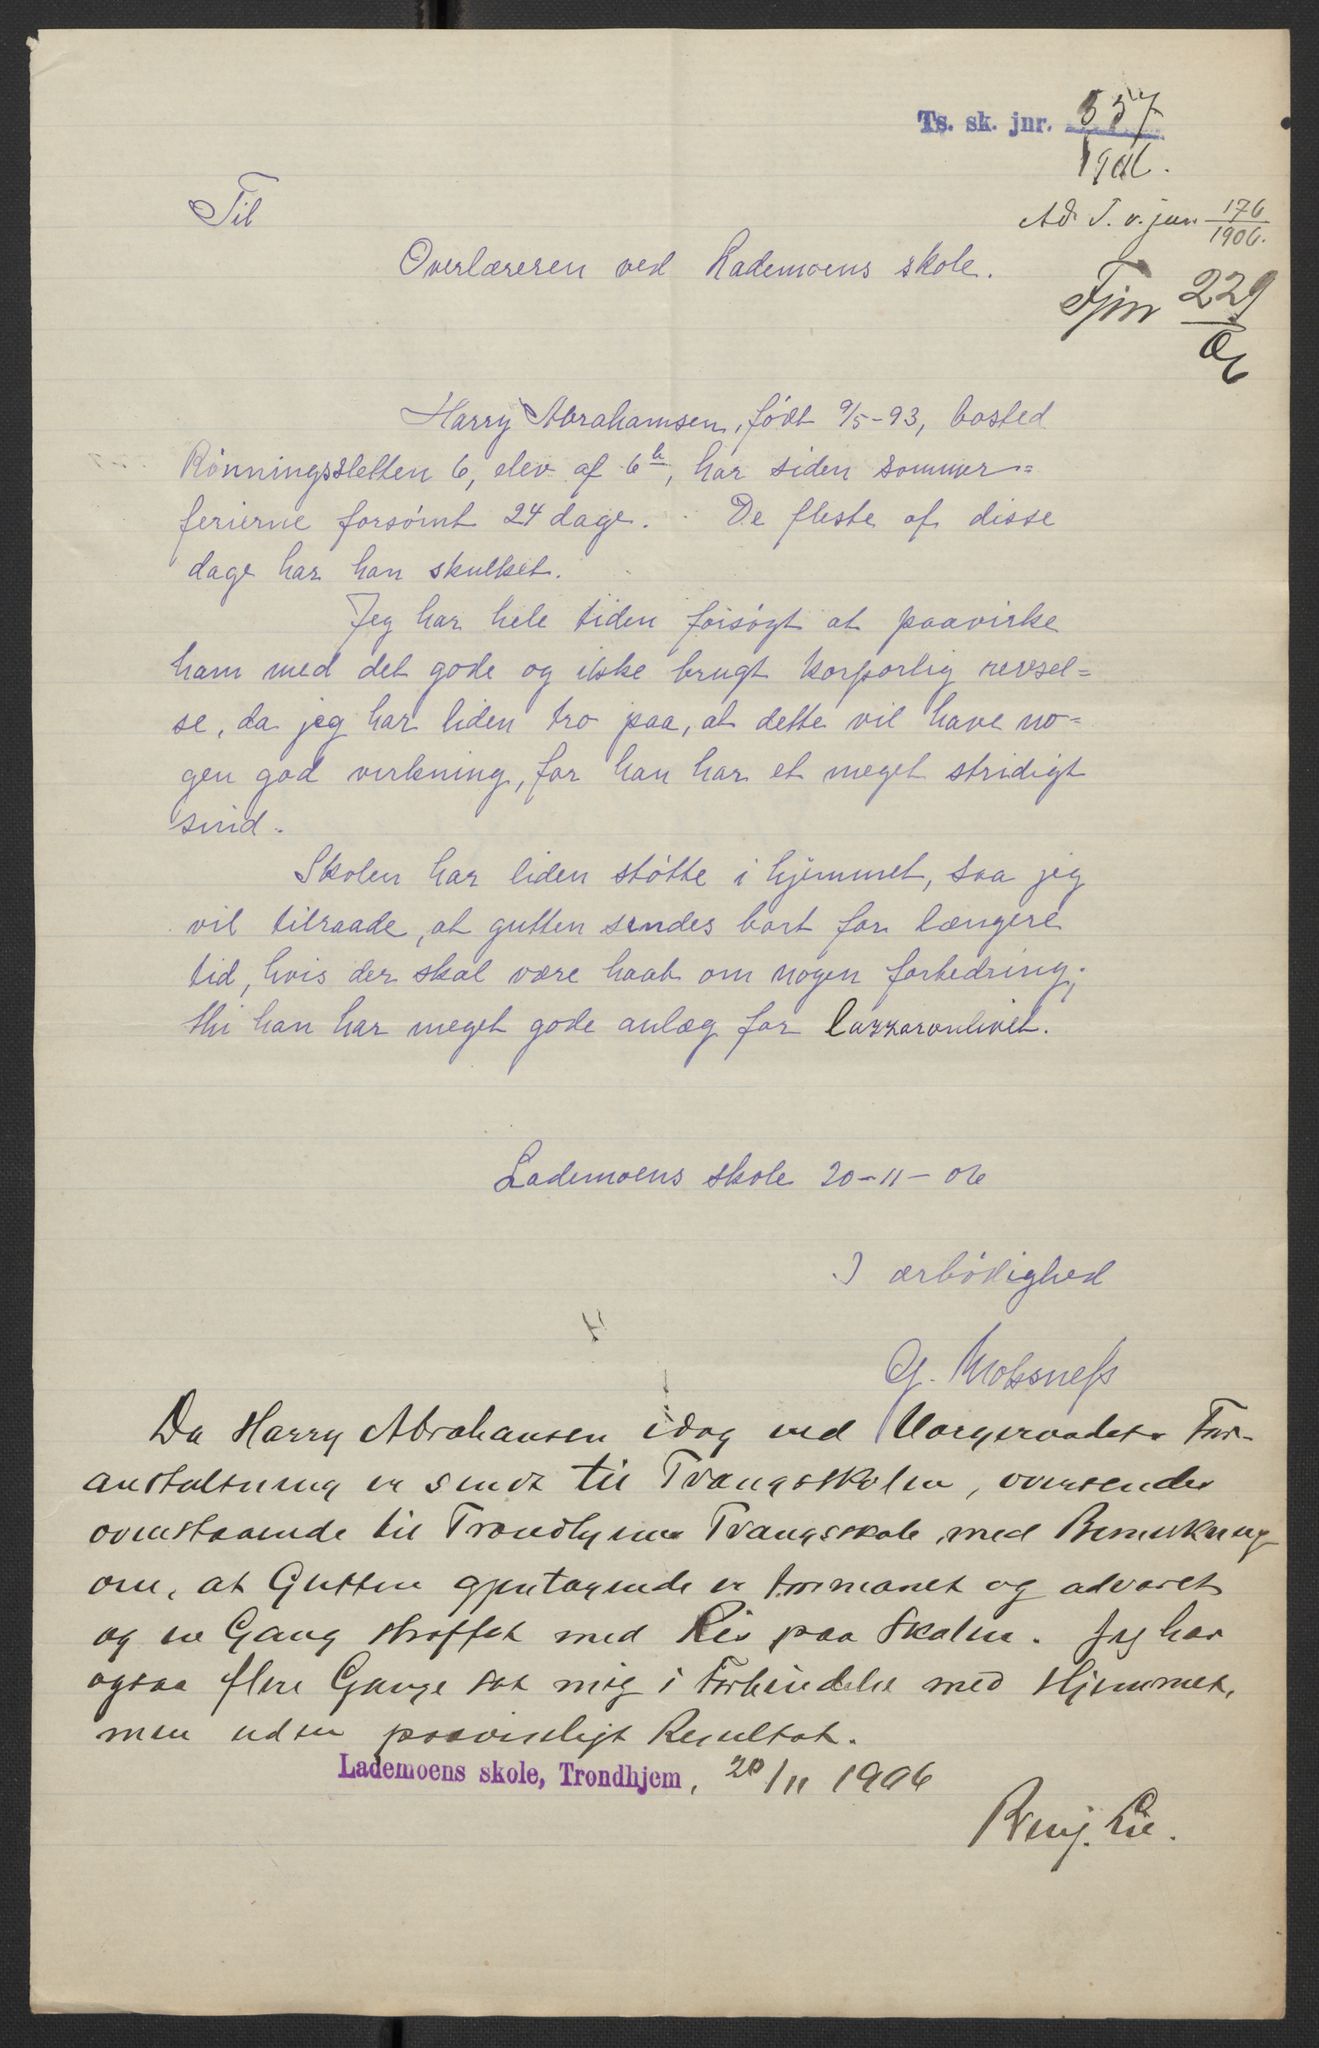 Ts. sk. jnr. 357
1906.
Ad. T. v. jnr. 176/1906.
Fjnr 229/06
Til
Overlæreren ved Lademoens skole.
Harry Abrahamsen, født 9/5-93, bosted
Rönningsletten 6, elev af 6te, har siden sommer=
ferierne forsömt 24 dage. De fleste af disse
dage har han skulket.
Jeg har hele tiden forsøgt at paavirke
ham med det gode og ikke brugt korporlig revsel=
se, da jeg har liden tro paa, at dette vil have no=
gen god virkning, for han har et meget stridigt
sind.
Skolen har liden støtte i hjemmet, saa jeg
vil tilraade, at gutten sendes bort for længere
tid, hvis der skal være haab om nogen forbedring;
thi han har meget gode anlæg for lazzaronlivet.
Lademoens skole 20-11-06
I ærbödighed
G. Mossness
Da Harry Abrahamsen idag ved Værgeraadets For-
anstaltning er sendt til Tvangsskolen, oversendes
ovenstaaende til Trondhjems Tvangsskole med Bemerkning
om, at Gutten gjentagende er formanet og advaret
og en Gang straffet med Ris paa Skolen. Jeg har
ogsaa flere Gange sat mig i Forbindelse med Hjemmet,
men uden paaviseligt Resultat.
Lademoens skole, Trondhjem, 20/11 1906
Benj. Lie.